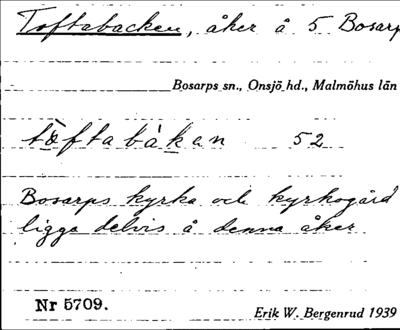 Toftabacken, åker å 5 Bosarp
Bosarps sn., Onsjö hd., Malmöhus län
tòftabàkan 52
Bosarps kyrka och kyrkogård
ligga delvis å denna åker
Nr 5709.
Erik W. Bergenrud 1939